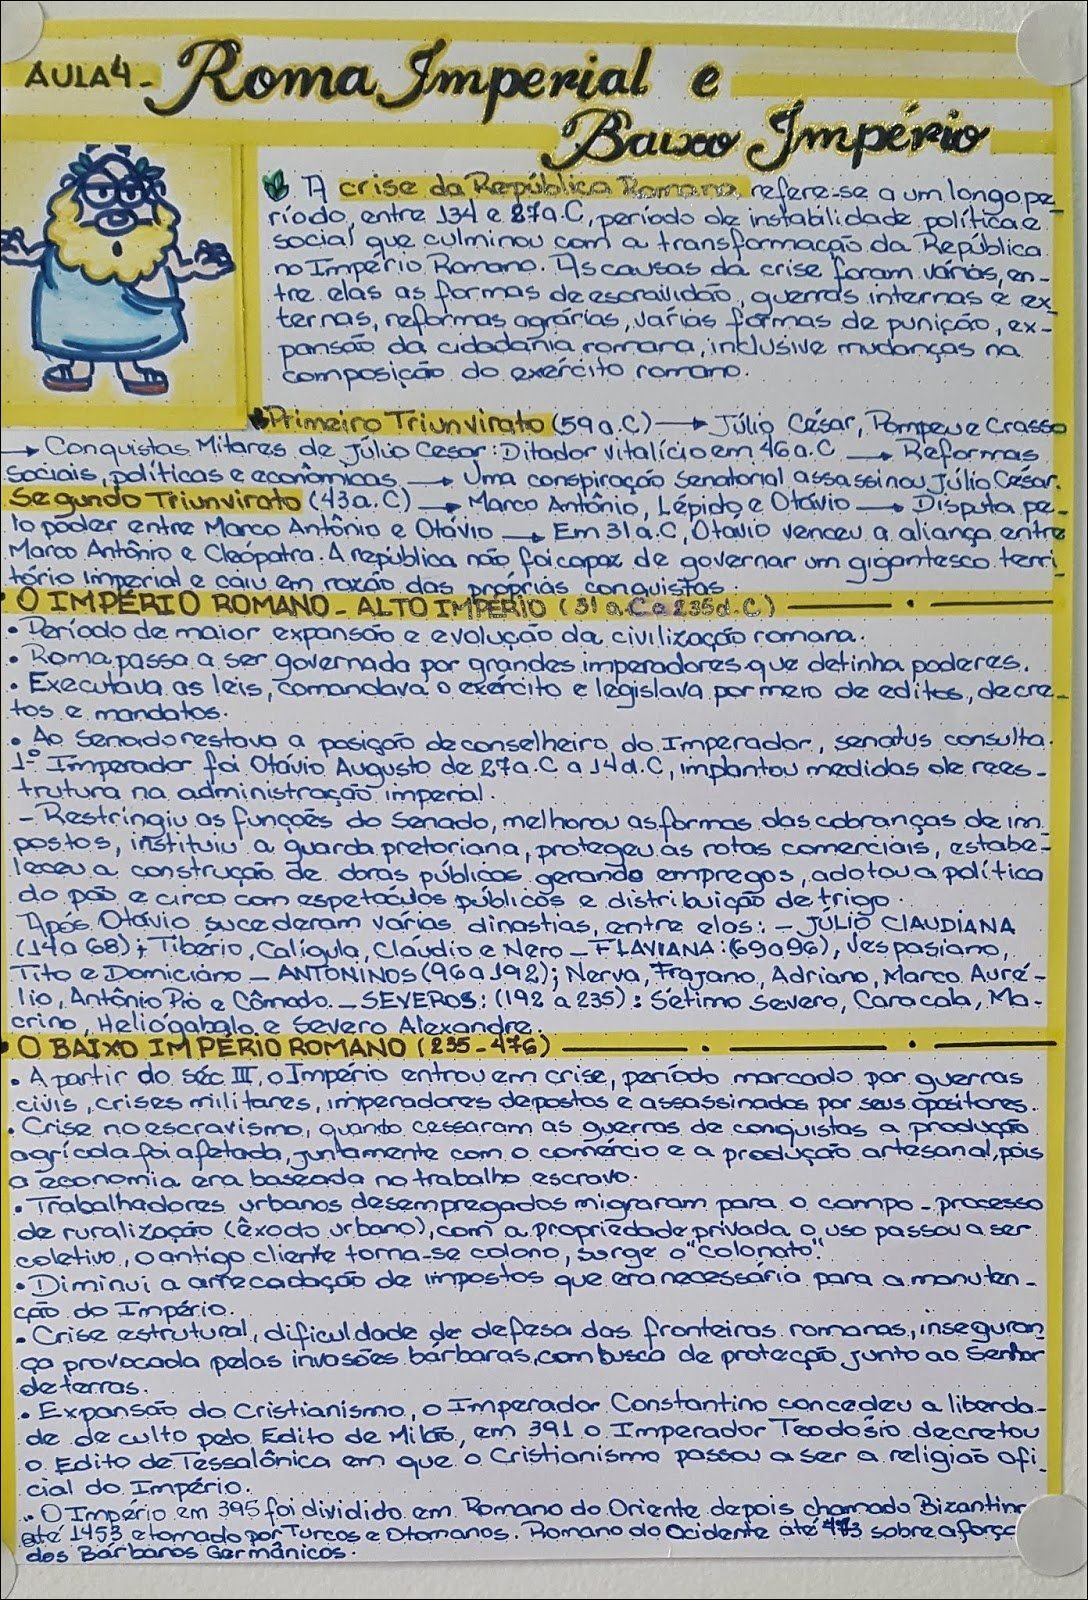 AULA 4 - Roma Imperial e
Baixo Império
A crise da República Romana refere-se a um longo pe-
ríodo, entre 134 e 27 a.C, período de instabilidade política e
social que culminou com a transformação da República
no Império Romano. As causas da crise foram várias, en-
tre elas as formas de escravidão, guerras internas e ex-
ternas, reformas agrárias, várias formas de punição, ex-
pansão da cidadania romana, inclusive mudanças na
composição do exército romano.
Primeiro Triunvirato (59 a.C) → Júlio César, Pompeu e Crasso
→ Conquistas Mitares de Júlio Cesar: Ditador vitalício em 46 a.C → Reformas
sociais, políticas e econômicas → Uma conspiração Senatorial assassinou Júlio César.
Segundo Triunvirato (43 a.C) → Marco Antônio, Lépido e Otávio → Disputa pe-
lo poder entre Marco Antônio e Otávio → Em 31 a.C, Otavio venceu a aliança entre
Marco Antônio e Cleópatra. A república não foi capaz de governar um gigantesco terri-
tório Imperial e caiu em razão das próprias conquistas.
• O IMPÉRIO ROMANO - ALTO IMPÉRIO (31 a.C a 235 d.C)
• Período de maior expansão e evolução da civilização romana.
• Roma passa a ser governada por grandes imperadores que detinha poderes.
• Executava as leis, comandava o exército e legislava por meio de editos, decre-
tos e mandatos.
• Ao Senado restava a posição de conselheiro do Imperador, senatus consulta.
1º Imperador foi Otávio Augusto de 27 a.C a 14 d.C, implantou medidas de rees-
trutura na administração imperial.
- Restringiu as funções do Senado, melhorou as formas das cobranças de im-
postos, instituiu a guarda pretoriana, protegeu as rotas comerciais, estabe-
leceu a construção de obras públicas gerando empregos, adotou a política
do pão e circo com espetáculos públicos e distribuição de trigo.
Após Otávio sucederam várias dinastias, entre elas: - JULIO CLAUDIANA
(14 a 68); Tibério, Calígula, Cláudio e Nero - FLAVIANA: (69 a 96), Vespasiano,
Tito e Domiciano - ANTONINOS (96 a 192); Nerva, Trajano, Adriano, Marco Auré-
lio, Antônio Pio e Cômodo. - SEVEROS: (192 a 235): Sétimo Severo, Caracala, Ma-
crino, Heliogabalo e Severo Alexandre.
• O BAIXO IMPÉRIO ROMANO (235 - 476)
• A partir do séc III, o Império entrou em crise, período marcado por guerras
civis, crises militares, imperadores depostos e assassinados por seus opositores.
• Crise no escravismo, quando cessaram as guerras de conquistas a produção
agrícola foi afetada, juntamente com o comércio e a produção artesanal, pois
a economia era baseada no trabalho escravo.
• Trabalhadores urbanos desempregados migraram para o campo - processo
de ruralização (êxodo urbano), com a propriedade privada o uso passou a ser
coletivo, o antigo cliente torna-se colono, surge o "colonato".
• Diminui a arrecadação de impostos que era necessária para a manuten-
ção do Império.
• Crise estrutural, dificuldade de defesa das fronteiras romanas, inseguran-
ça provocada pelas invasões bárbaras, com busca de proteção junto ao Senhor
de terras.
• Expansão do Cristianismo, o Imperador Constantino concedeu a liberda-
de de culto pelo Edito de Milão, em 391 o Imperador Teodósio decretou
o Edito de Tessalônica em que o Cristianismo passou a ser a religião ofi-
cial do Império.
• O Império em 395 foi dividido em Romano do Oriente depois chamado Bizantino
até 1453 e tomado por Turcos e Otomanos. Romano do Ocidente até 473 sobre a força
dos Bárbaros Germânicos.